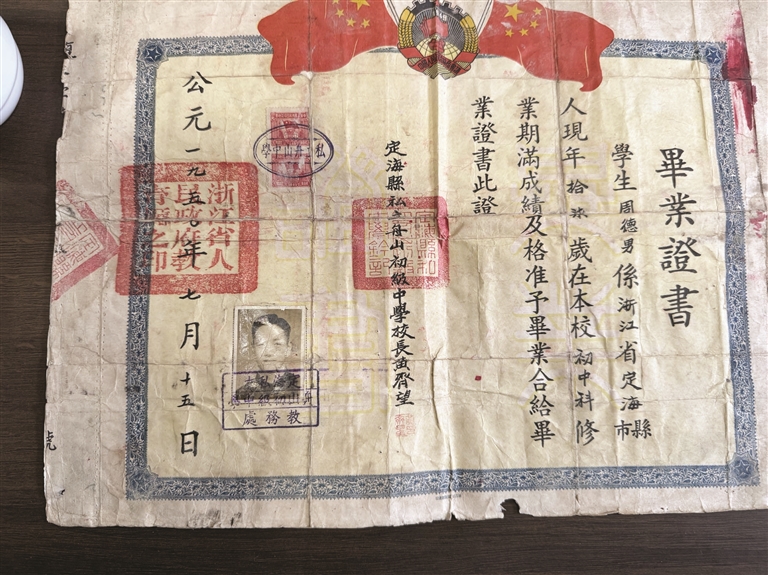 畢業證書
學生周德男係浙江省定海縣市
人現年拾玖歲在本校初中科修
業期滿成績及格准予畢業合給畢
業證書此證
定海縣私立舟山初級中學校長黃齊望
公元一九五〇年七月十五日
浙江省人
民政府教
育廳之印
私立舟山中學
教務處
號